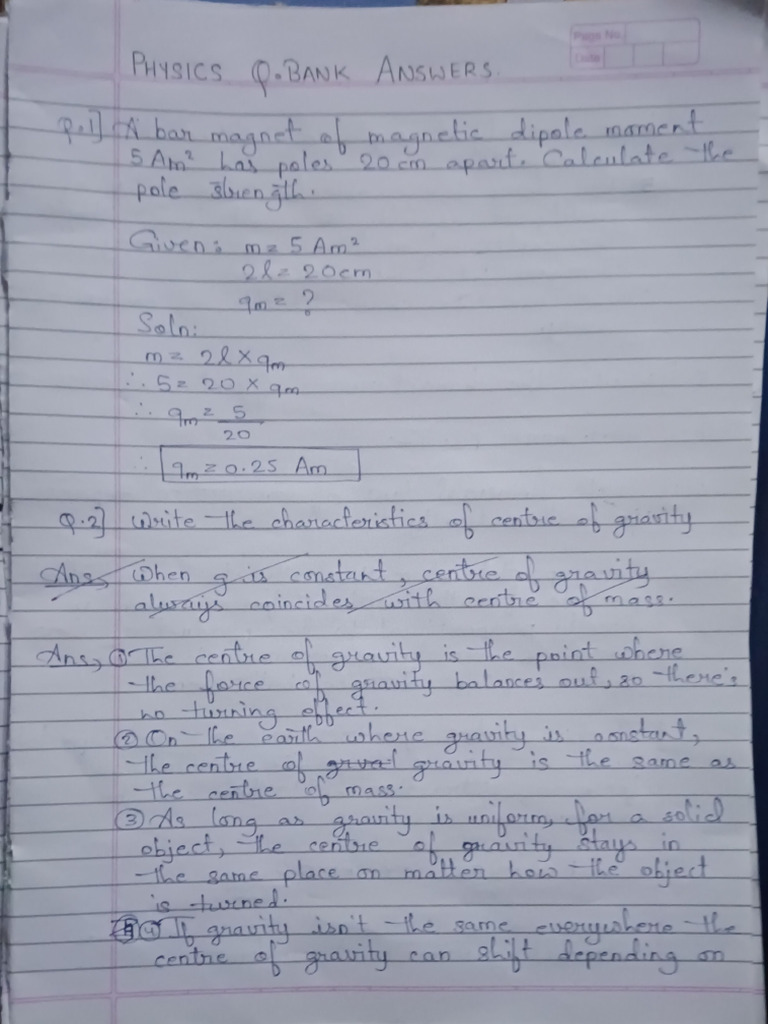 Page No.
Date
PHYSICS Q.BANK ANSWERS.
Q.1] A bar magnet of magnetic dipole moment
5 Am² has poles 20 cm apart. Calculate the
pole strength.
Given: m = 5 Am²
2l = 20cm
qm = ?
Soln:
m = 2l × qm
∴ 5 = 20 × qm
∴ qm = 5/20
∴ qm = 0.25 Am
Q.2] Write the characteristics of centre of gravity
Ans, When g is constant, centre of gravity
always coincides with centre of mass.
Ans, ① The centre of gravity is the point where
the force of gravity balances out, so there's
no turning effect.
② On the earth where gravity is constant,
the centre of gravity is the same as
the centre of mass.
③ As long as gravity is uniform, for a solid
object, the centre of gravity stays in
the same place on matter how the object
is turned.
④ If gravity isn't the same everywhere the
centre of gravity can shift depending on